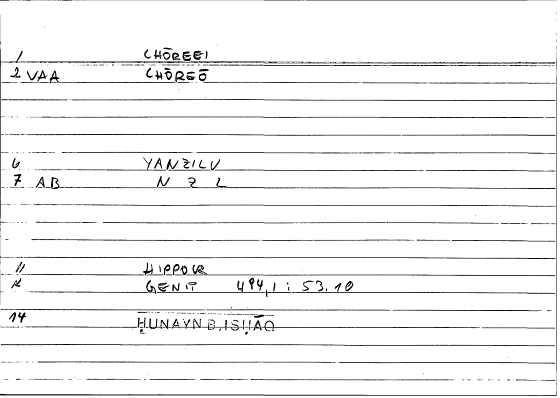 1 CHŌREEI
2 VAA CHŌREŌ
6 YANZILU
7 AB N Z L
11 HIPPOCR
12 GENIT 494,1 : 53.10
14 ḤUNAYN B. ISḤĀQ